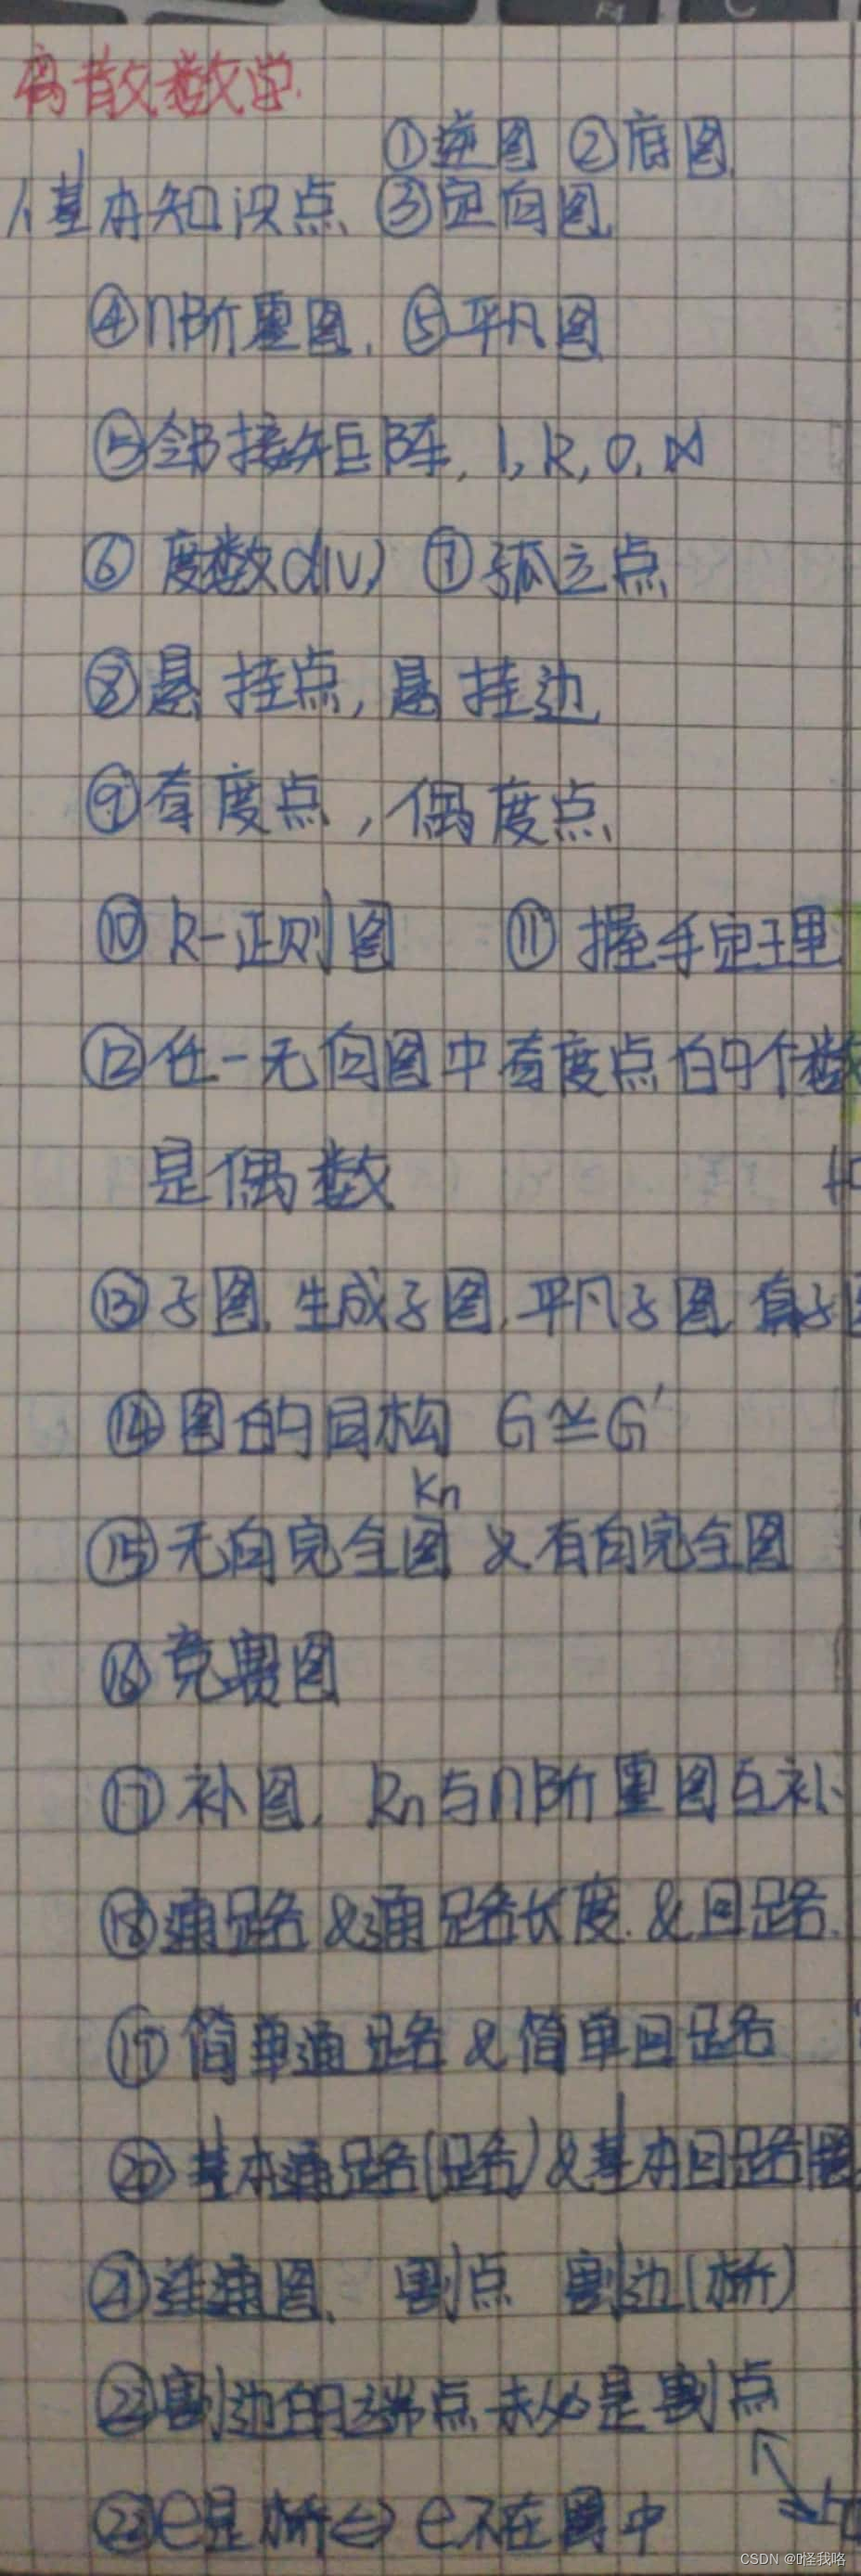 F4 C
离散数学.
①逆图 ②底图.
1.基本知识点. ③定向图.
④n阶零图. ⑤平凡图
⑤邻接矩阵, 1, k, 0, ⋈
⑥ 度数d(v) ⑦孤立点
⑧悬挂点, 悬挂边.
⑨奇度点, 偶度点.
⑩ k-正则图 ⑪ 握手定理
⑫任一无向图中奇度点的个数
是偶数
⑬子图. 生成子图. 平凡子图. 真子
⑭图的同构 G≅G'
Kn
⑮无向完全图 & 有向完全图
⑯竞赛图
⑰补图. Kn与n阶零图互补.
⑱通路&通路长度.&回路.
⑲简单通路&简单回路
⑳基本通路(路)&基本回路圈.
㉑连通图. 割点 割边(桥)
㉒割边的端点未必是割点
㉓e是桥⇔e不在圈中
CSDN @怪我咯